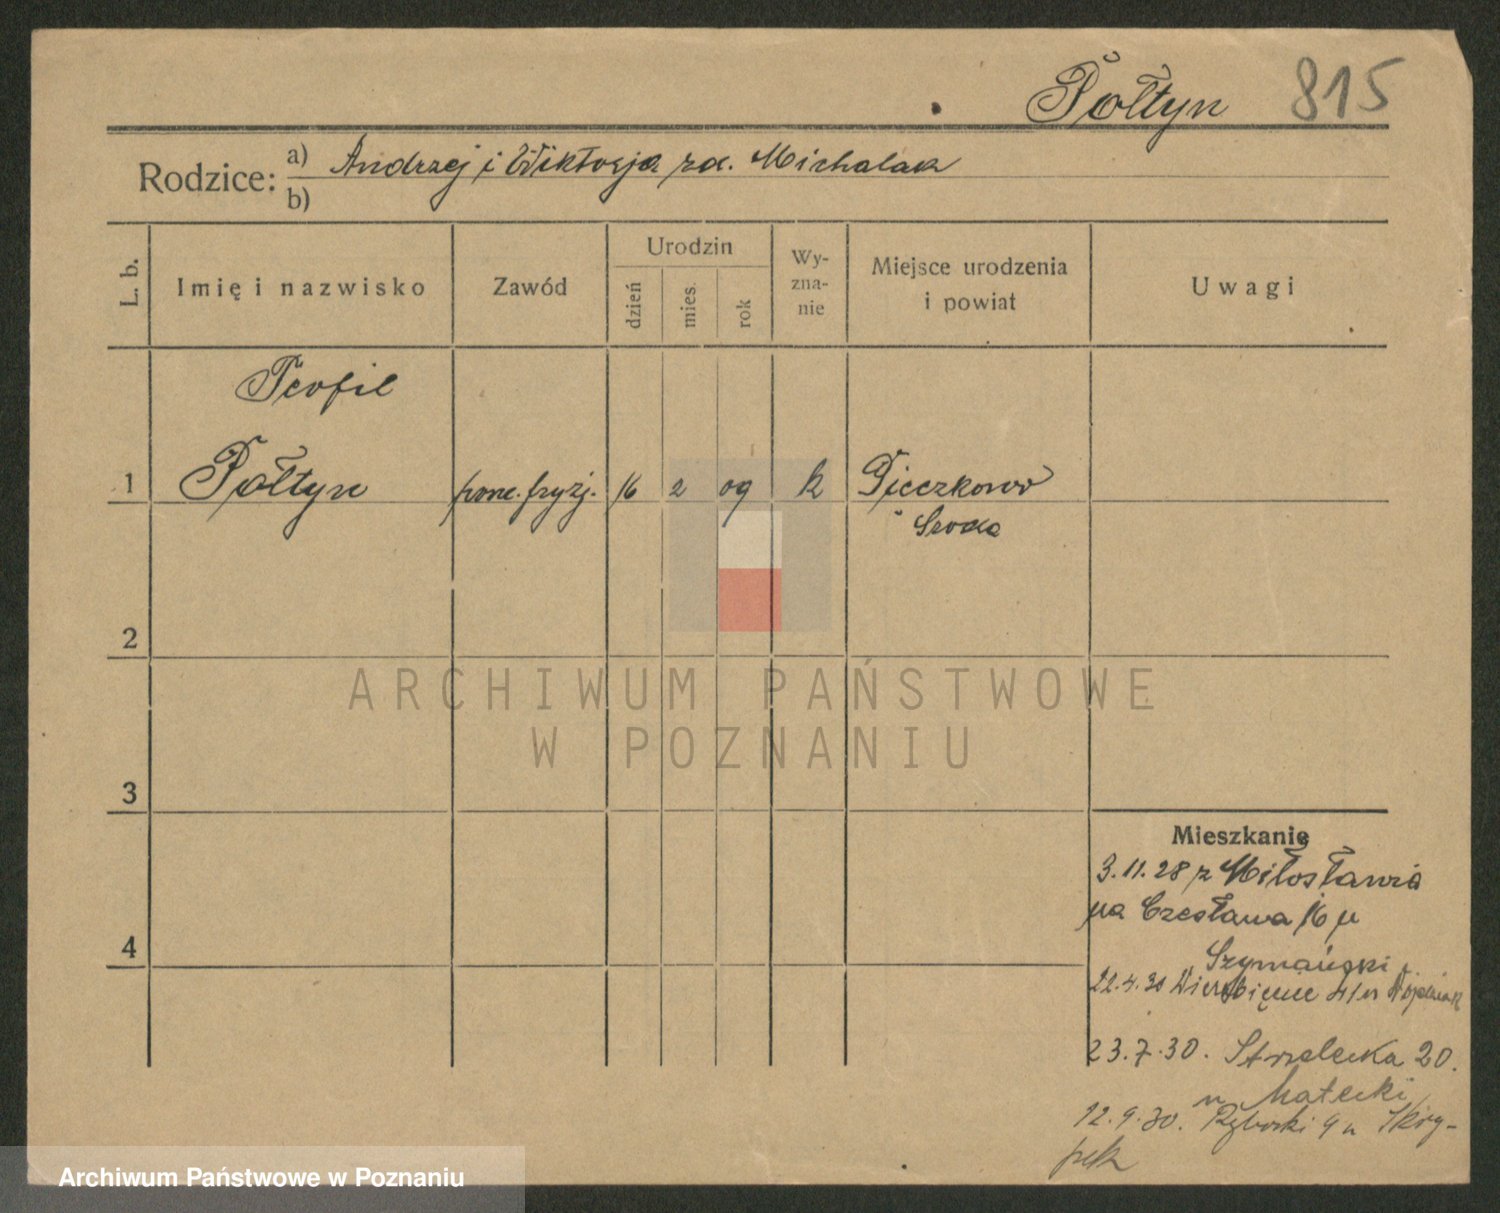 Połtyn 815
Rodzice: a) Andrzej i Wiktorja zd. Michalak
b)
L. b.
Imię i nazwisko
Zawód
Urodzin
dzień
mies.
rok
Wy-
zna-
nie
Miejsce urodzenia
i powiat
Uwagi
Teofil
1 Połtyn pom. fryzj. 16 2 09 k Pięczkowo
Środa
2
3
4
Mieszkanie
3.11.28 z Miłosławia
na Czesława 16 u
Szymański
22.4.30 Wierzbięcice 41 u
23.7.30. Strzelecka 20.
u Matecki
12.9.30. Rybaki 9 u Skrzy-
pek
ARCHIWUM PAŃSTWOWE
W POZNANIU
Archiwum Państwowe w Poznaniu